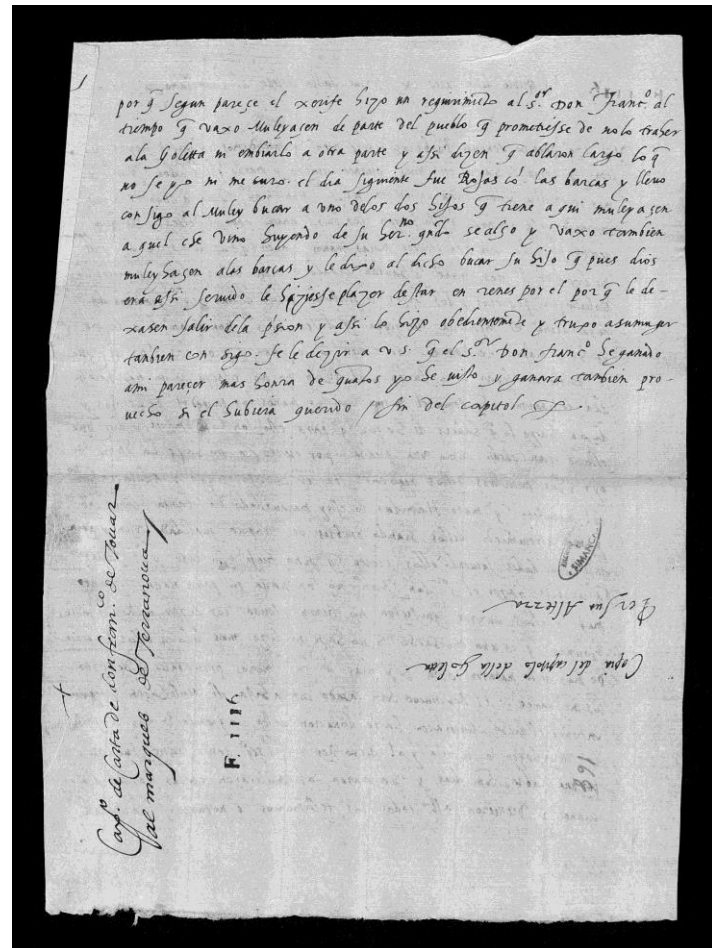 por q̃ segun pareçe el xerife hizo un requirimi̅to al s.or Don Franc.o al
tiempo q̃ vaxo Muleyaçen de parte del pueblo q̃ prometiesse de nolo traher
ala Goletta ni embiarlo a otra parte y assi dizen q̃ ablaron largo lo q̃
no se yo ni me curo. el dia siguiente fue Rojas co̅ las barcas y lleuo
consigo al Muley bucar a uno delos dos hijos q̃ tiene aqui muleyaçen
aquel che vino huyendo de su her.no qn̅do se alço y vaxo tambien
muleyhaçen alas barcas y le dixo al dicho bucar su hijo q̃ pues dios
era assi seruido le hiziesse plazer destar en renes por el por q̃ le de-
xasen salir dela p̅sion y assi lo hizo obedientemẽte y truxo asumuger
tanbien con sigo. se le dezir a v. s. q̃ el s.or Don franc.o he ganado
ami parecer mas honra de qua̅tos yo he uisto y ganara tambien pro-
uecho si el hubiera querido / fin del capitol
Cap.o de Carta de don fran.co de Touar
al marques de Terranoua
F. 1116
Per sua Altezza
Copia del capitolo della Goleta
168